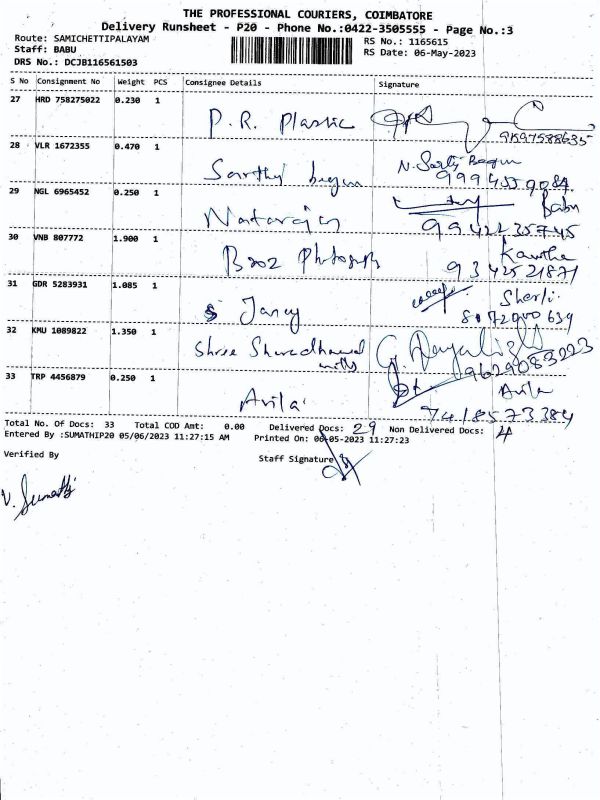 THE PROFESSIONAL COURIERS, COIMBATORE
Delivery Runsheet - P20 - Phone No.:0422-3505555 - Page No.:3
Route: SAMICHETTIPALAYAM
RS No.: 1165615
Staff: BABU
RS Date: 06-May-2023
DRS No.: DCJB116561503
S No Consignment No Weight PCS Consignee Details Signature
27 HRD 758275022 0.230 1
P.R. Plastic
28 VLR 1672355 0.470 1
Sarthi begum
N. Sarthi Begum
29 NGL 6965452 0.250 1
Natarajan
Babu
30 VNB 807772 1.900 1
Photograph
Kavitha
31 GDR 5283931 1.085 1
Jancy
Sherli
32 KMU 1089822 1.350 1
Shree
mills
9629083223
33 TRP 4456879 0.250 1
Avila
Avila
7418573384
Total No. Of Docs: 33 Total COD Amt: 0.00 Delivered Docs: 29 Non Delivered Docs: 4
Entered By :SUMATHIP20 05/06/2023 11:27:15 AM Printed On: 06-05-2023 11:27:23
Verified By
Staff Signature
V. Sumathi